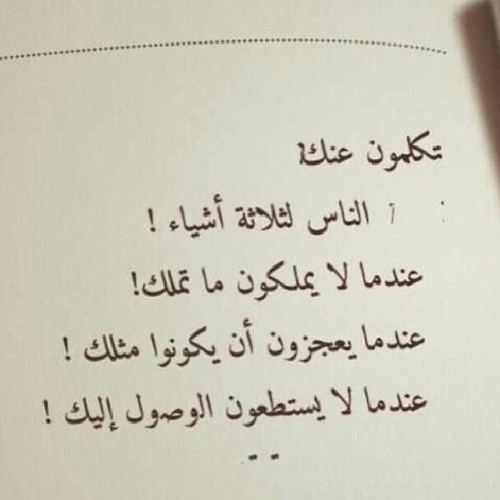 تكلمون عنك
الناس لثلاثة أشياء !
عندما لا يملكون ما تملك!
عندما يعجزون أن يكونوا مثلك !
عندما لا يستطعون الوصول إليك !